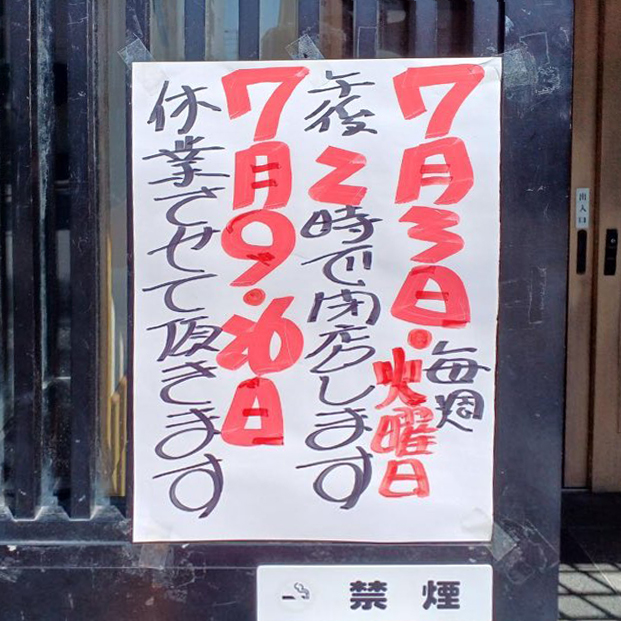 7月3日・毎週火曜日
午後2時で閉店します
7月9・26日
休業させて頂きます
出入口
禁煙